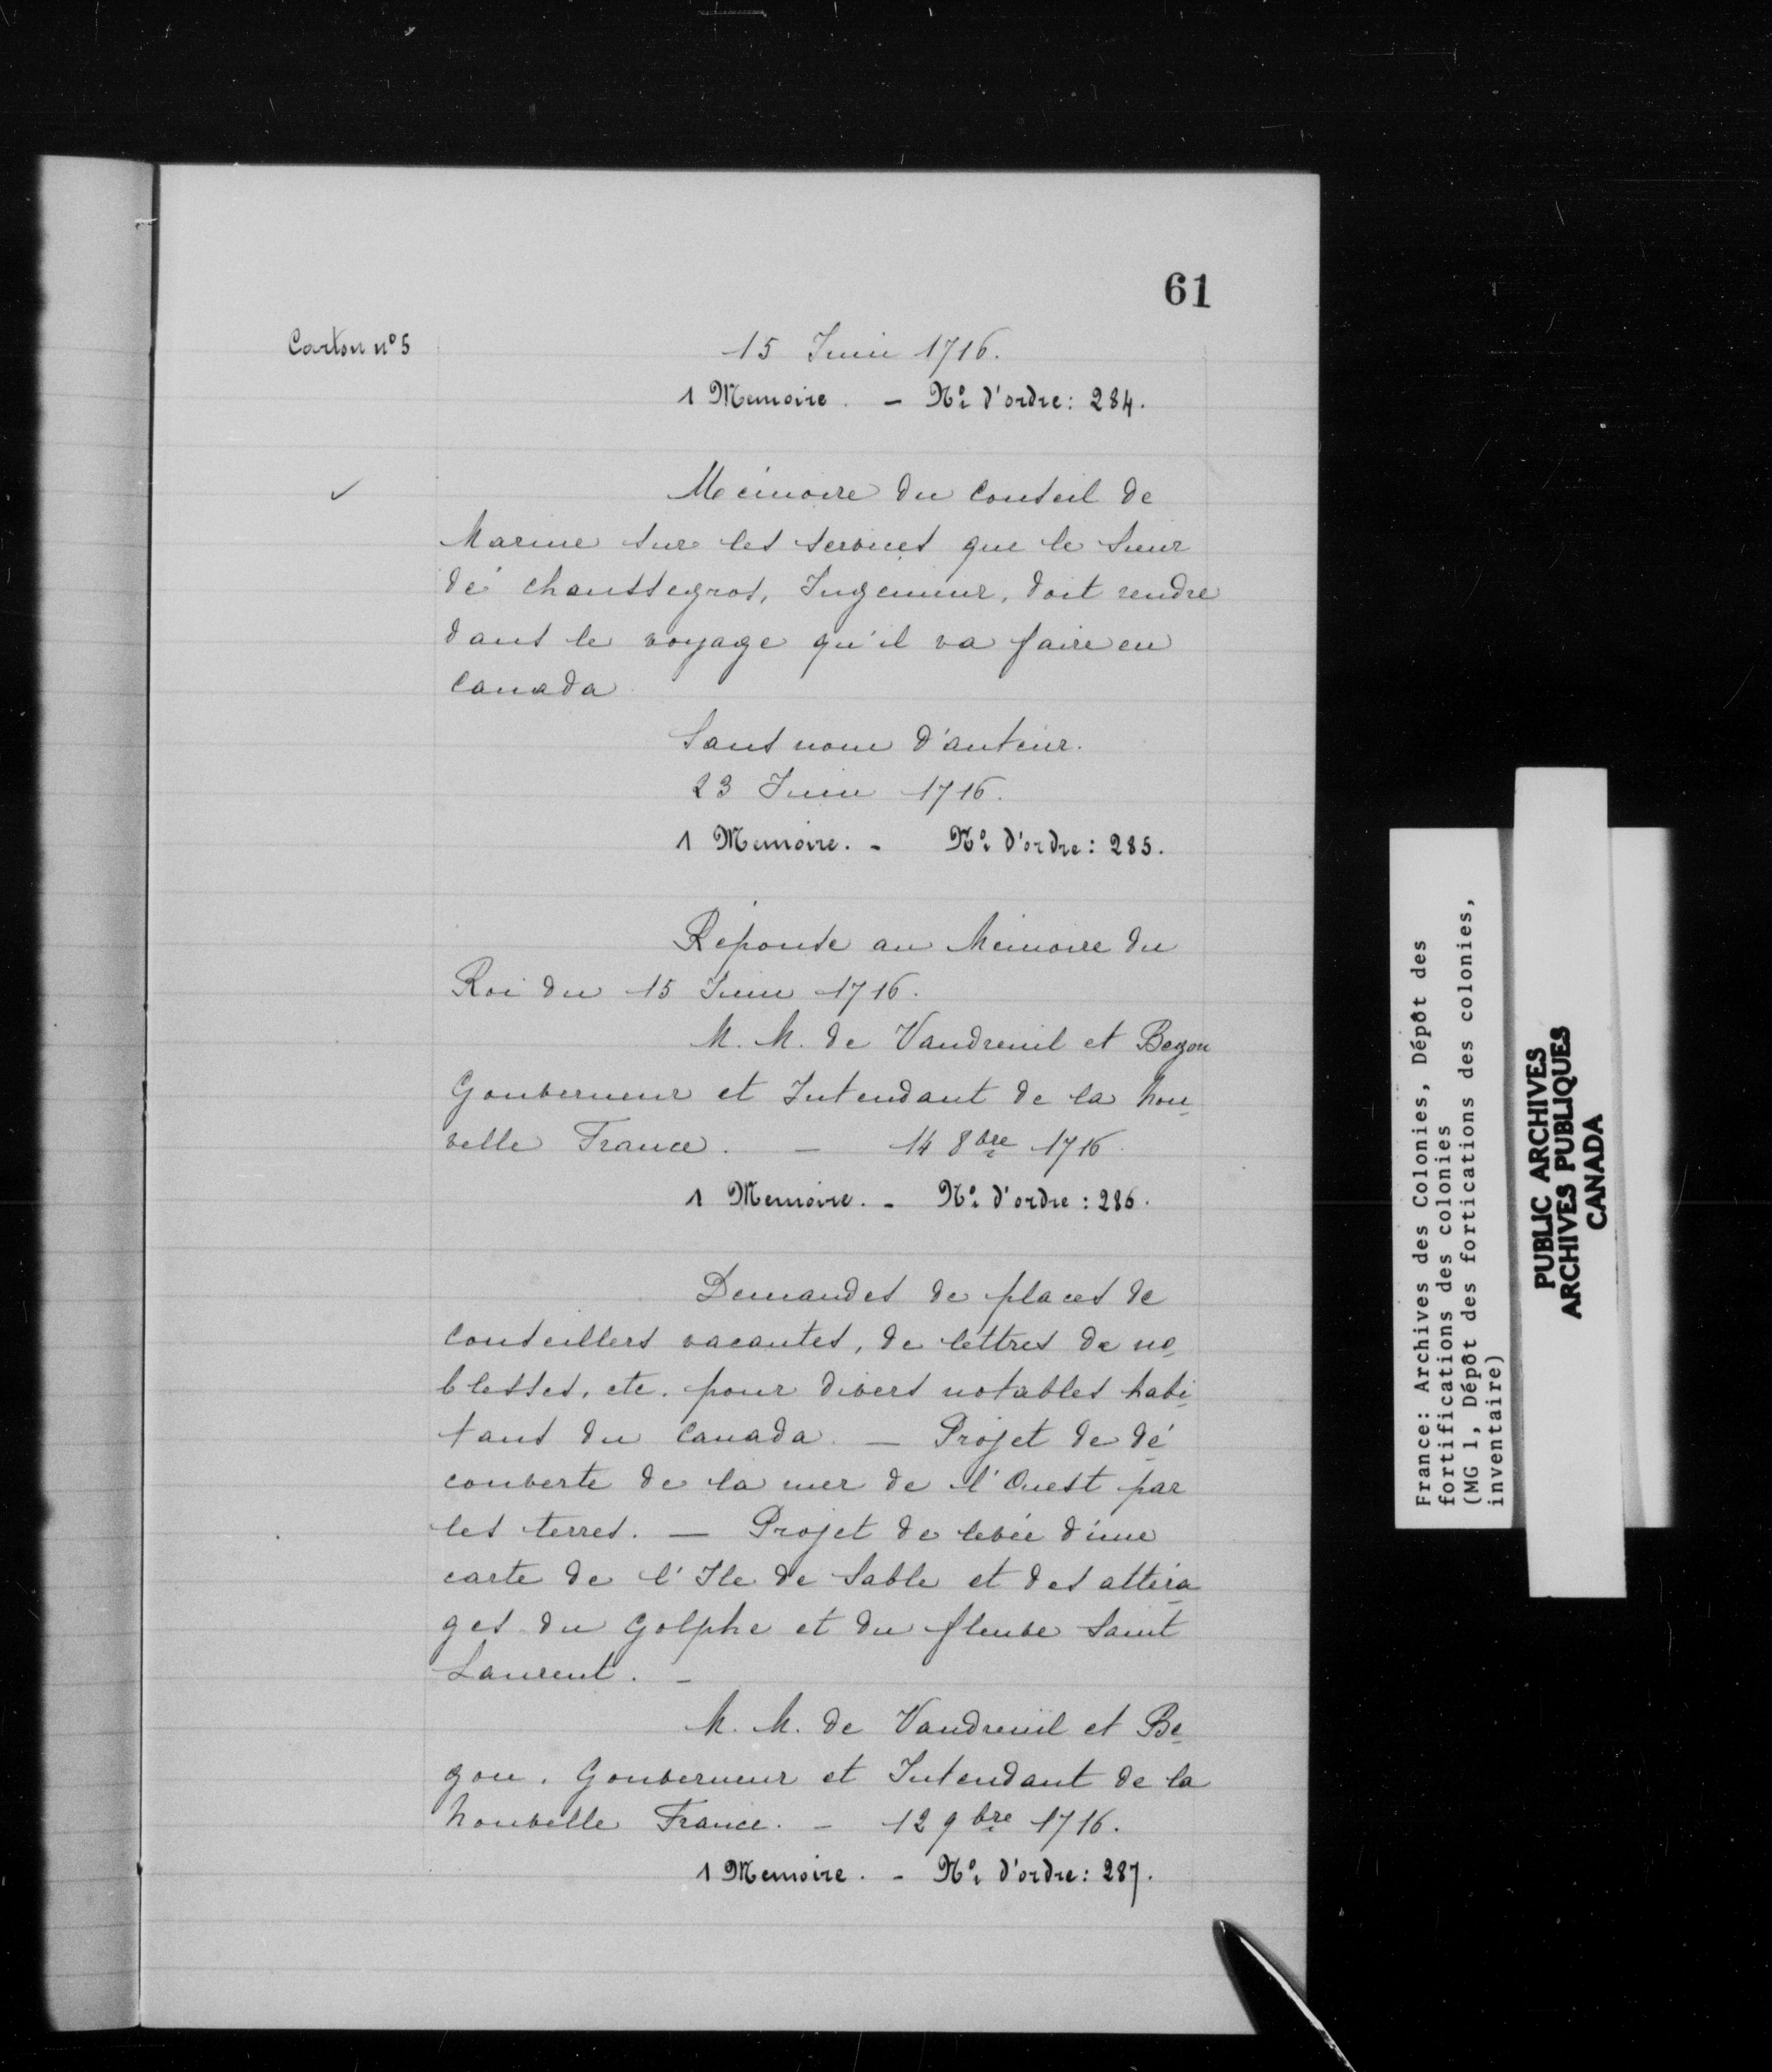 61
Carton nº 5
15 Juin 1716.
1 Memoire. — Nº d'ordre: 284.
Mémoire du Conseil de
Marine sur les services que le Sieur
de Chaussegros, Ingenieur, doit rendre
dans le voyage qu'il va faire en
Canada
Sans nom d'auteur.
23 Juin 1716.
1 Memoire. - Nº d'ordre: 285.
Réponse au Mémoire du
Roi du 15 Juin 1716.
M. M. de Vaudreuil et Begon
Gouverneur et Intendant de la Nou-
velle France. — 14 8bre 1716.
1 Memoire. - Nº d'ordre: 286.
Demandes de places de
Conseillers vacantes, de lettres de no-
blesses, etc. pour divers notables habi-
tans du Canada. — Projet de dé-
couverte de la mer de l'Ouest par
les terres. — Projet de levée d'une
carte de l'Ile de Sable et des attéra-
ges du Golphe et du fleuve Saint
Laurent. -
M. M. de Vaudreuil et Be-
gon. Gouverneur et Intendant de la
Nouvelle France. - 12 9bre 1716.
1 Memoire. - Nº d'ordre: 287.
France: Archives des Colonies, Dépôt des
fortifications des colonies
(MG 1, Dépôt des fortications des colonies,
inventaire)
PUBLIC ARCHIVES
ARCHIVES PUBLIQUES
CANADA